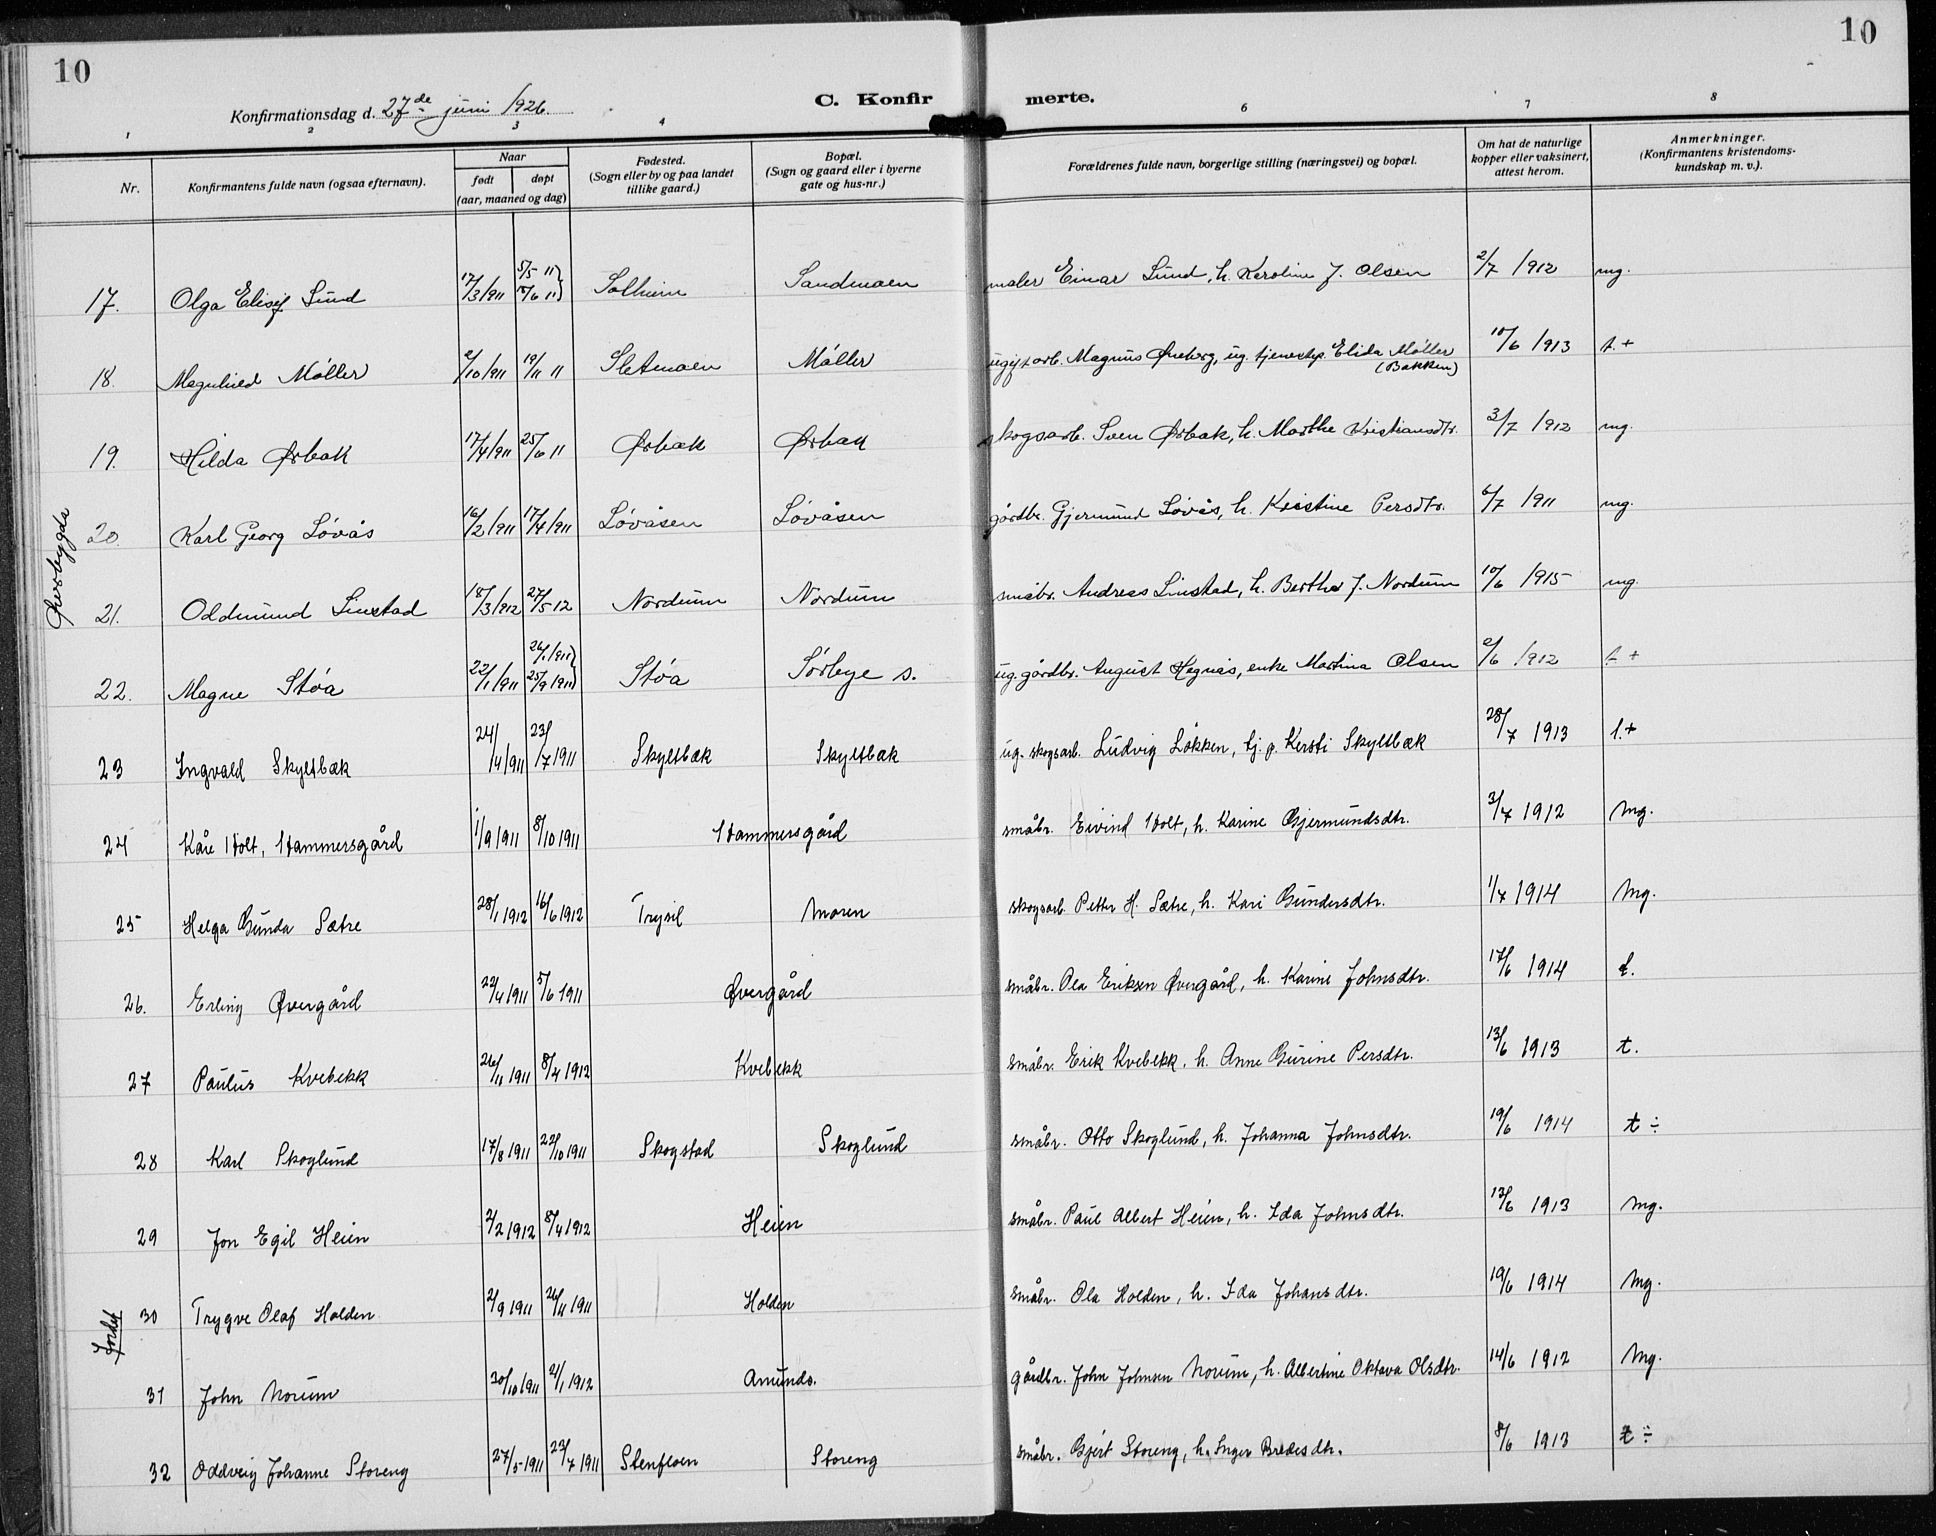 10
10
Konfirmationsdag d. 27de juni 1926.
C. Konfirmerte.
1 2 3 4 6 7 8
Nr.
Konfirmantens fulde navn (ogsaa efternavn).
Naar
født døpt
(aar, maaned og dag)
Fødested.
(Sogn eller by og paa landet
tillike gaard.)
Bopæl.
(Sogn og gaard eller i byerne
gate og hus-nr.)
Forældrenes fulde navn, borgerlige stilling (næringsvei) og bopæl.
Om hat de naturlige
kopper eller vaksinert,
attest herom.
Anmerkninger.
(Konfirmantens kristendoms-
kundskap m. v.).
17. Olga Elisif Lund 17/3 1911 5/5 11 Solheim Sandmoen maler Einar Lund, h. Karoline J. Olsen 2/7 1912 mg.
18. Magnhild Møller 2/10 1911 19/11 11 Sletmoen Møller ugift arb. Magnus Øneberg, ug. tjenestep. Elida Møller (Bakken) 10/6 1913 t.+
19. Hilda Ørbak 17/4 1911 25/6 11 Ørbak Ørbak skogsarb. Sven Ørbak, h. Marthe Kristiansdtr. 3/7 1912 mg.
Øverbygda
20. Karl Georg Løvås 16/2 1911 17/4 1911 Løvåsen Løvåsen gårdbr. Gjermund Løvås, h. Kristine Persdtr. 6/7 1911 mg.
21. Oddmund Linstad 18/3 1912 27/5 12 Nordum Nordum småbr. Andreas Linstad, h. Berthe J. Nordum 10/6 1915 mg.
22. Magne Støa 22/1 1911 26/1 1911 25/9 1911 Støa Sørbye s. ug. gårdbr. August Hegnås, enke Martina Olsen 2/6 1912 t +
23 Ingvald Skyltbæk 24/4 1911 23/7 1911 Skyltbæk Skyltbæk ug. skogsarb. Ludvig Løkken, tj. p. Kersti Skyltbæk 28/7 1913 t.+
24 Kåre Holt, Hammersgård 1/9 1911 8/10 1911 Hammersgård småbr. Eivind Holt, h. Karine Gjermundsdtr. 3/7 1912 Mg.
25 Helga Gunda Sætre 28/1 1912 16/6 1912 Trysil Moren skogsarb. Petter H. Sætre, h. Kari Gundersdtr. 1/7 1914 Mg.
26. Erling Øvergård 22/4 1911 5/6 1911 Øvergård småbr. Ola Eriksen Øvergård, h. Karine Johnsdtr. 17/6 1914 t.
27 Paulus Kvebekk 26/11 1911 8/4 1912 Kvebekk småbr. Erik Kvebekk, h. Anne Gurine Persdtr. 13/6 1913 t.
28 Karl Skoglund 17/8 1911 22/10 1911 Skogstad Skoglund småbr. Otto Skoglund, h. Johanna Johnsdtr. 19/6 1914 t ÷
29 Jon Egil Heien 2/2 1912 8/4 1912 Heien småbr. Paul Albert Heien, h. Ida Johnsdtr. 13/6 1913 Mg.
Jordet
30 Trygve Olaf Holden 2/9 1911 26/11 1911 Holden småbr. Ola Holden, h. Ida Johansdtr. 19/6 1914 Mg.
31 John Norum 20/10 1911 21/1 1912 Amunds. gårdbr. John Johnsen Norum, h. Albertine Oktava Olsdtr. 14/6 1912 Mg.
32 Oddveig Johanne Storeng 27/5 1911 23/7 1911 Stenfloen Storeng småbr. Gjert Storeng, h. Inger Bredesdtr. 8/6 1913 t ÷